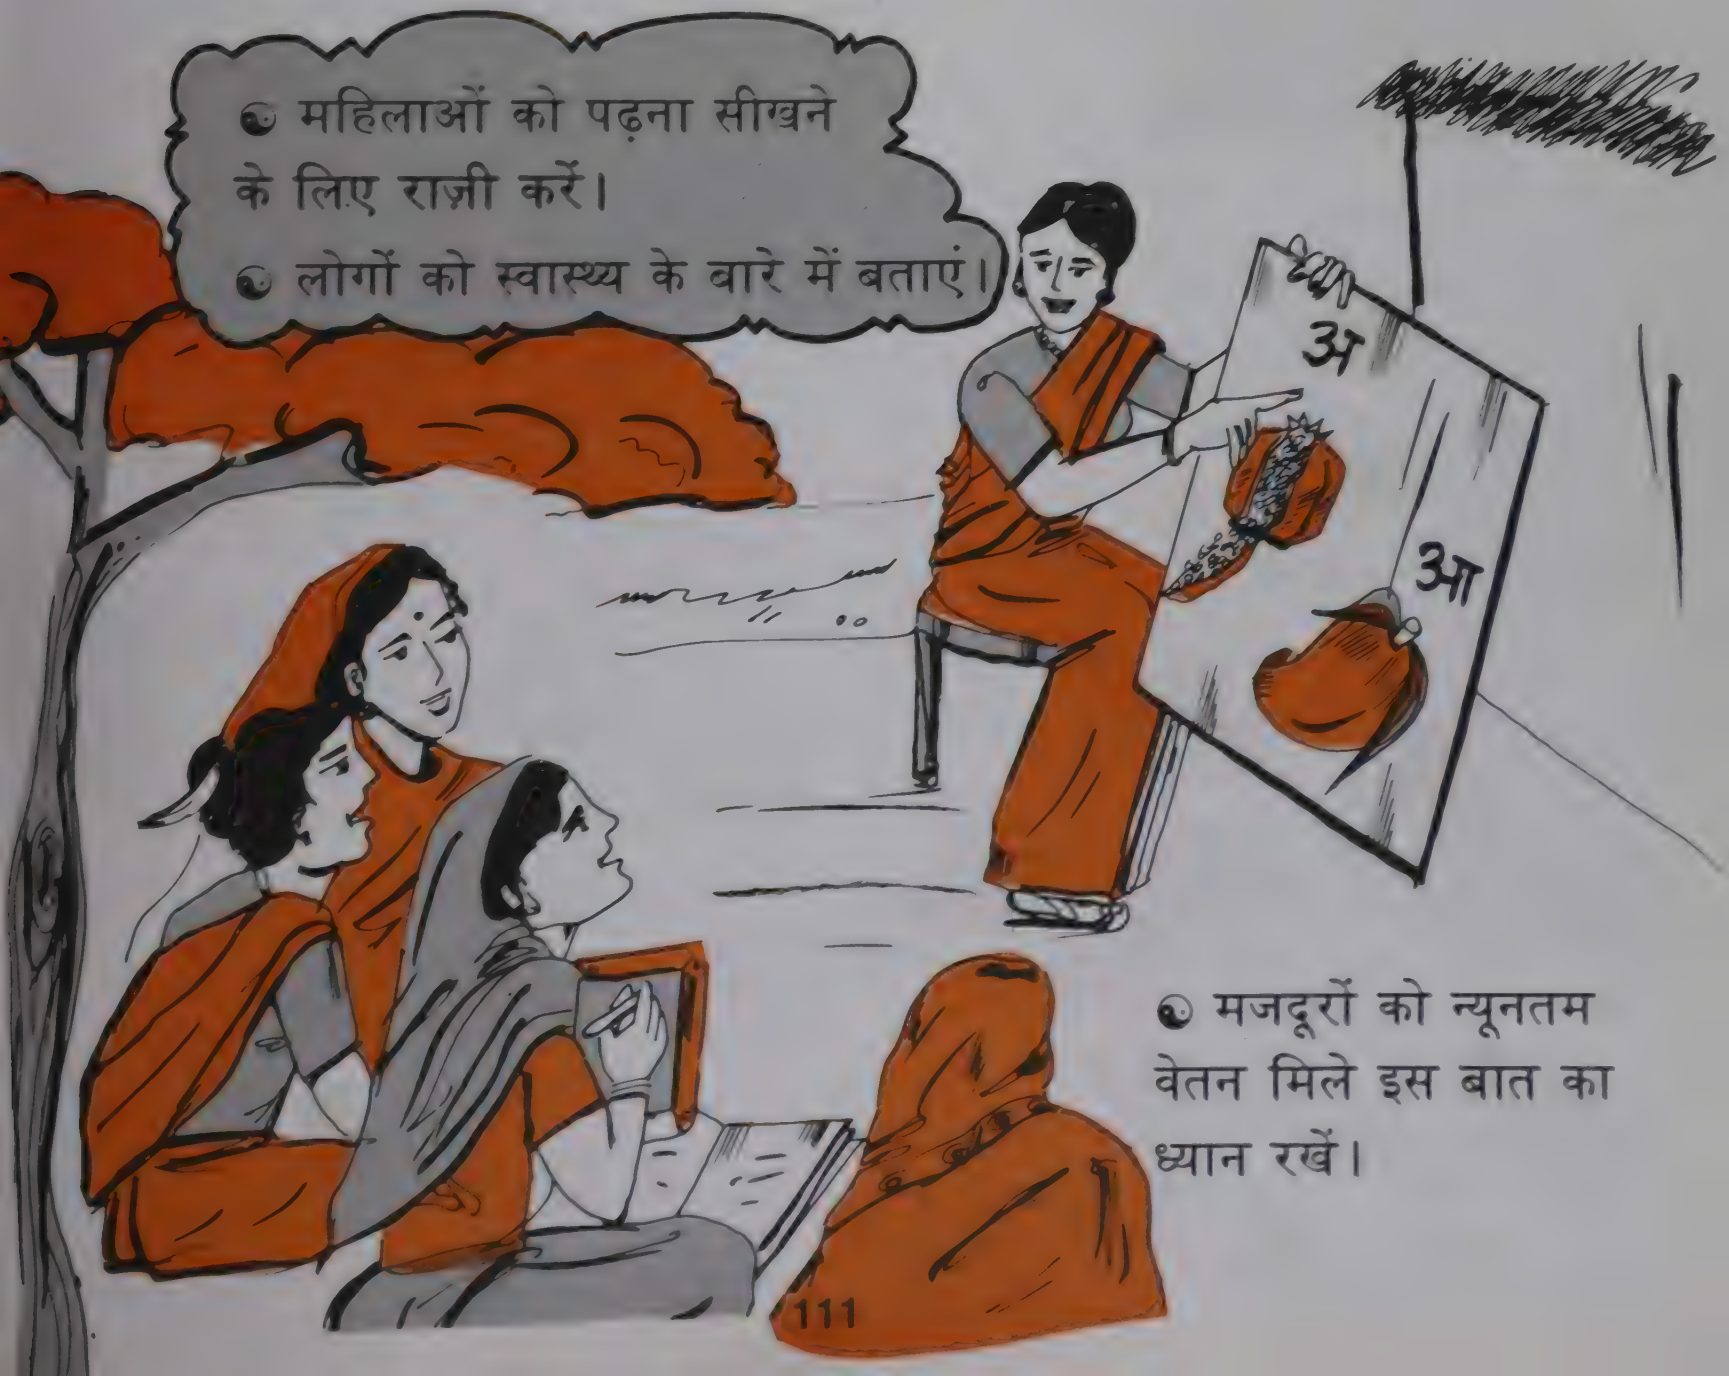 महिलाओं को पढ़ना सीखने
के लिए राज़ी करें।
लोगों को स्वास्थ्य के बारे में बताएं।
अ
आ
मजदूरों को न्यूनतम
वेतन मिले इस बात का
ध्यान रखें।
111